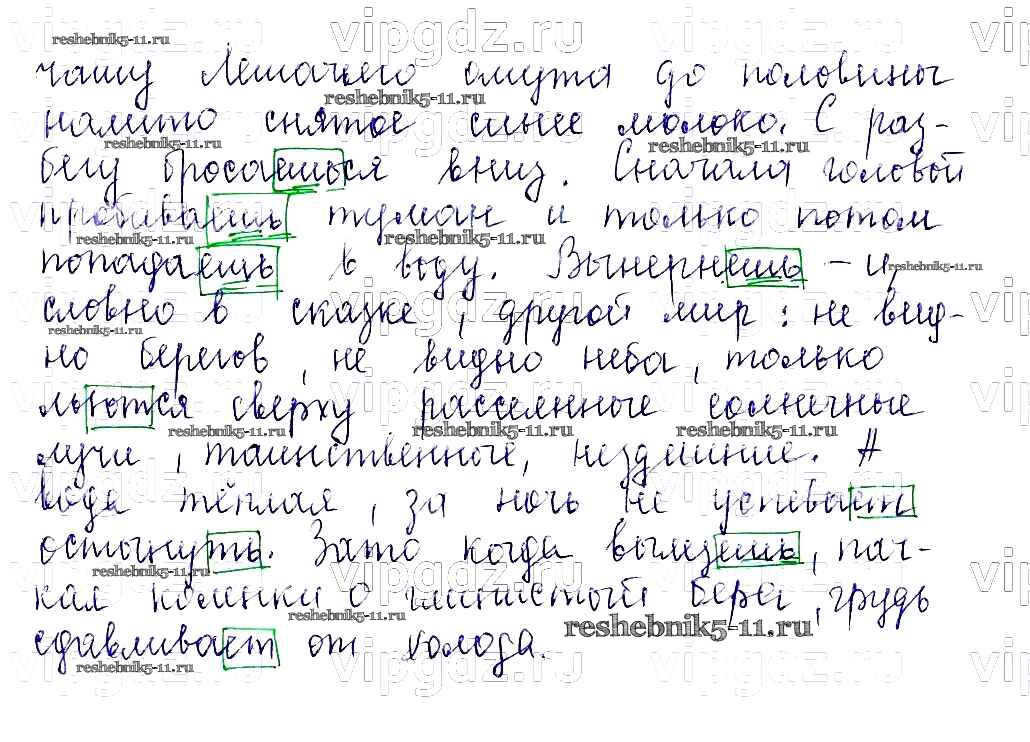 чашу Лешачьего омута до половины
налито снятое синее молоко. С раз-
бегу бросаешься вниз. Сначала головой
пробиваешь туман и только потом
попадаешь в воду. Вынернешь – и,
словно в сказке, другой мир: не вид-
но берегов, не видно неба, только
льются сверху рассеянные солнечные
лучи, таинственные, нездешние. А
вода тёплая, за ночь не успевает
остынуть. Зато когда вылезешь, пач-
кая коленки о глинистый берег, грудь
сдавливает от холода.